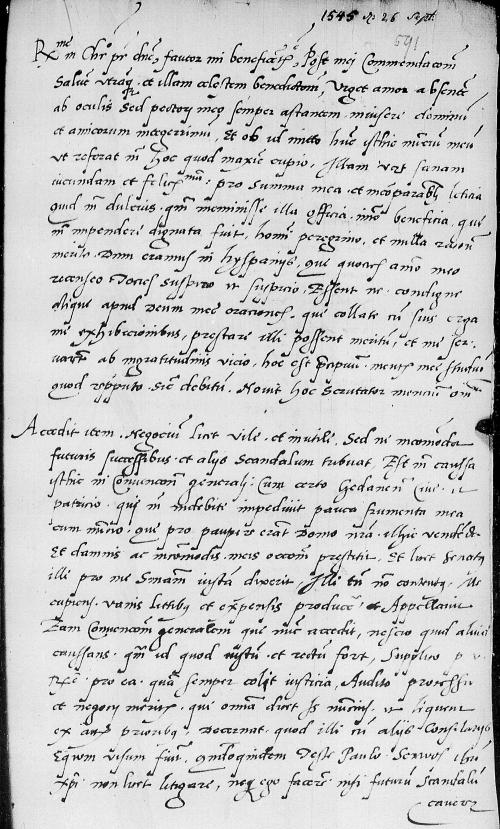 1545 26 Sept.
591
R.me in Chr̃o pr̃ dñe, fautor mi beneficẽt.e, Post mei Commendacom̃
Salutẽ utramq. et illam cœlestem benedictom̃, Urget amor absentẽ
ab oculis Sed pectori meo semper astantem invisere dominũ
et amicorum integerrimũ, Et ob id mitto hunc isthic nunciũ meũ
ut referat m̃ hoc quod maxie cupio, Illam vr̃t sanam
iucundam et felicem, pro summa mea et incõparabli leticia
Quid m̃ dulcius qm̃ meminisse illa officia, imo beneficia, que
m̃ impendere dignata fuit, homi peregrino, et nulla racione
merito. Dum eramus in hyspanijs, que quocies ao̅ meo
recenseo tocies suspiro et suspicio. Essent ne condigne
alique apud Deum mee oraciones, que collate cũ suis erga
me exhibicionibus, prestare illi possent meritũ, et me ser
varẽt ab ingratitudinis vicio, hoc est precipuũ mentis mee studiũ
quod reputo sic debitũ. Novit hoc Scrutator mencium om̃
Accedit item Negociũ licet vile et inutile, Sed ne incomoda
futuris successoribus et alijs Scandalum pariat, Est m̃ caussa
isthic in Conventiom̃ generali, Cum certo Gedanen̄ Cive et
patricio, qui m̃ indebite impedivit pauca frumenta mea
cum nuncio, que pro paupere erant Domo nr̃a illhic vendẽda
Et damnis ac incomodis meis occom̃ prestitit, Et licet Senatus
illi pro me Sniam iustã dixerit, Ille tñ non contentus, Me
cupiens vanis litibus et expensis producere Appellavit
Eam Conventionem generalem que nũc accedit, nescio quid aliud
caussans qm̃ id quod iustũ et rectũ foret, Supplico
pro ea quã semper colit iusticia, Audito processu
et negocij meritis, que omnia dicet is nuncius et liquent
ex actis prioribus, Decernat quod illi cũ alijs Consiliarijs
Equum visum fuit, quandoquidem Teste Paulo Servos
Xpi non licet litigare, neque ego facerem nisi futurũ Scandalũ
caverem